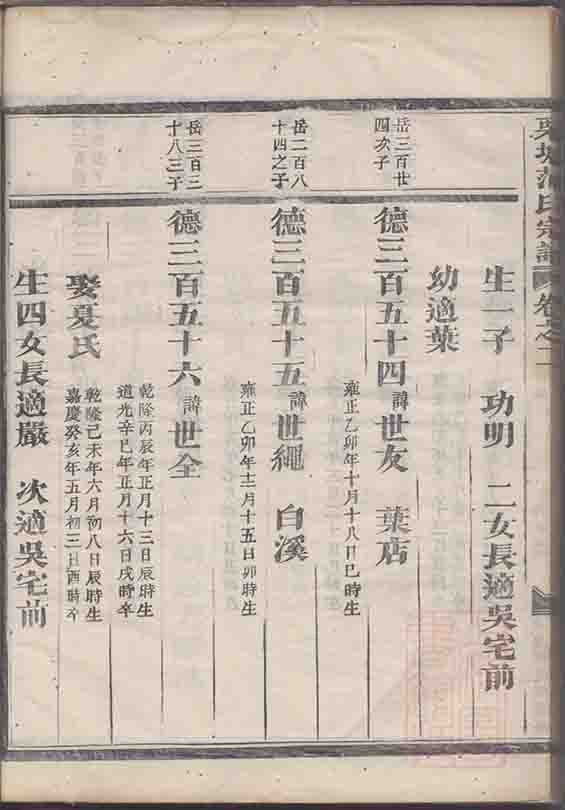 氏宗譜 卷之二
生一子 功明 二女長適吳宅前
幼適葉
岳三百廿
四次子
德三百五十四諱世友 葉店
雍正乙卯年十月十八日巳時生
岳二百八
十四之子
德三百五十五諱世繩 白溪
雍正乙卯年十二月十五日卯時生
岳三百三
十八三子
德三百五十六諱世全
乾隆丙辰年正月十三日辰時生
道光辛巳年正月十六日戌時卒
娶夏氏
乾隆己未年六月初八日辰時生
嘉慶癸亥年五月初三日酉時卒
生四女長適嚴 次適吳宅前